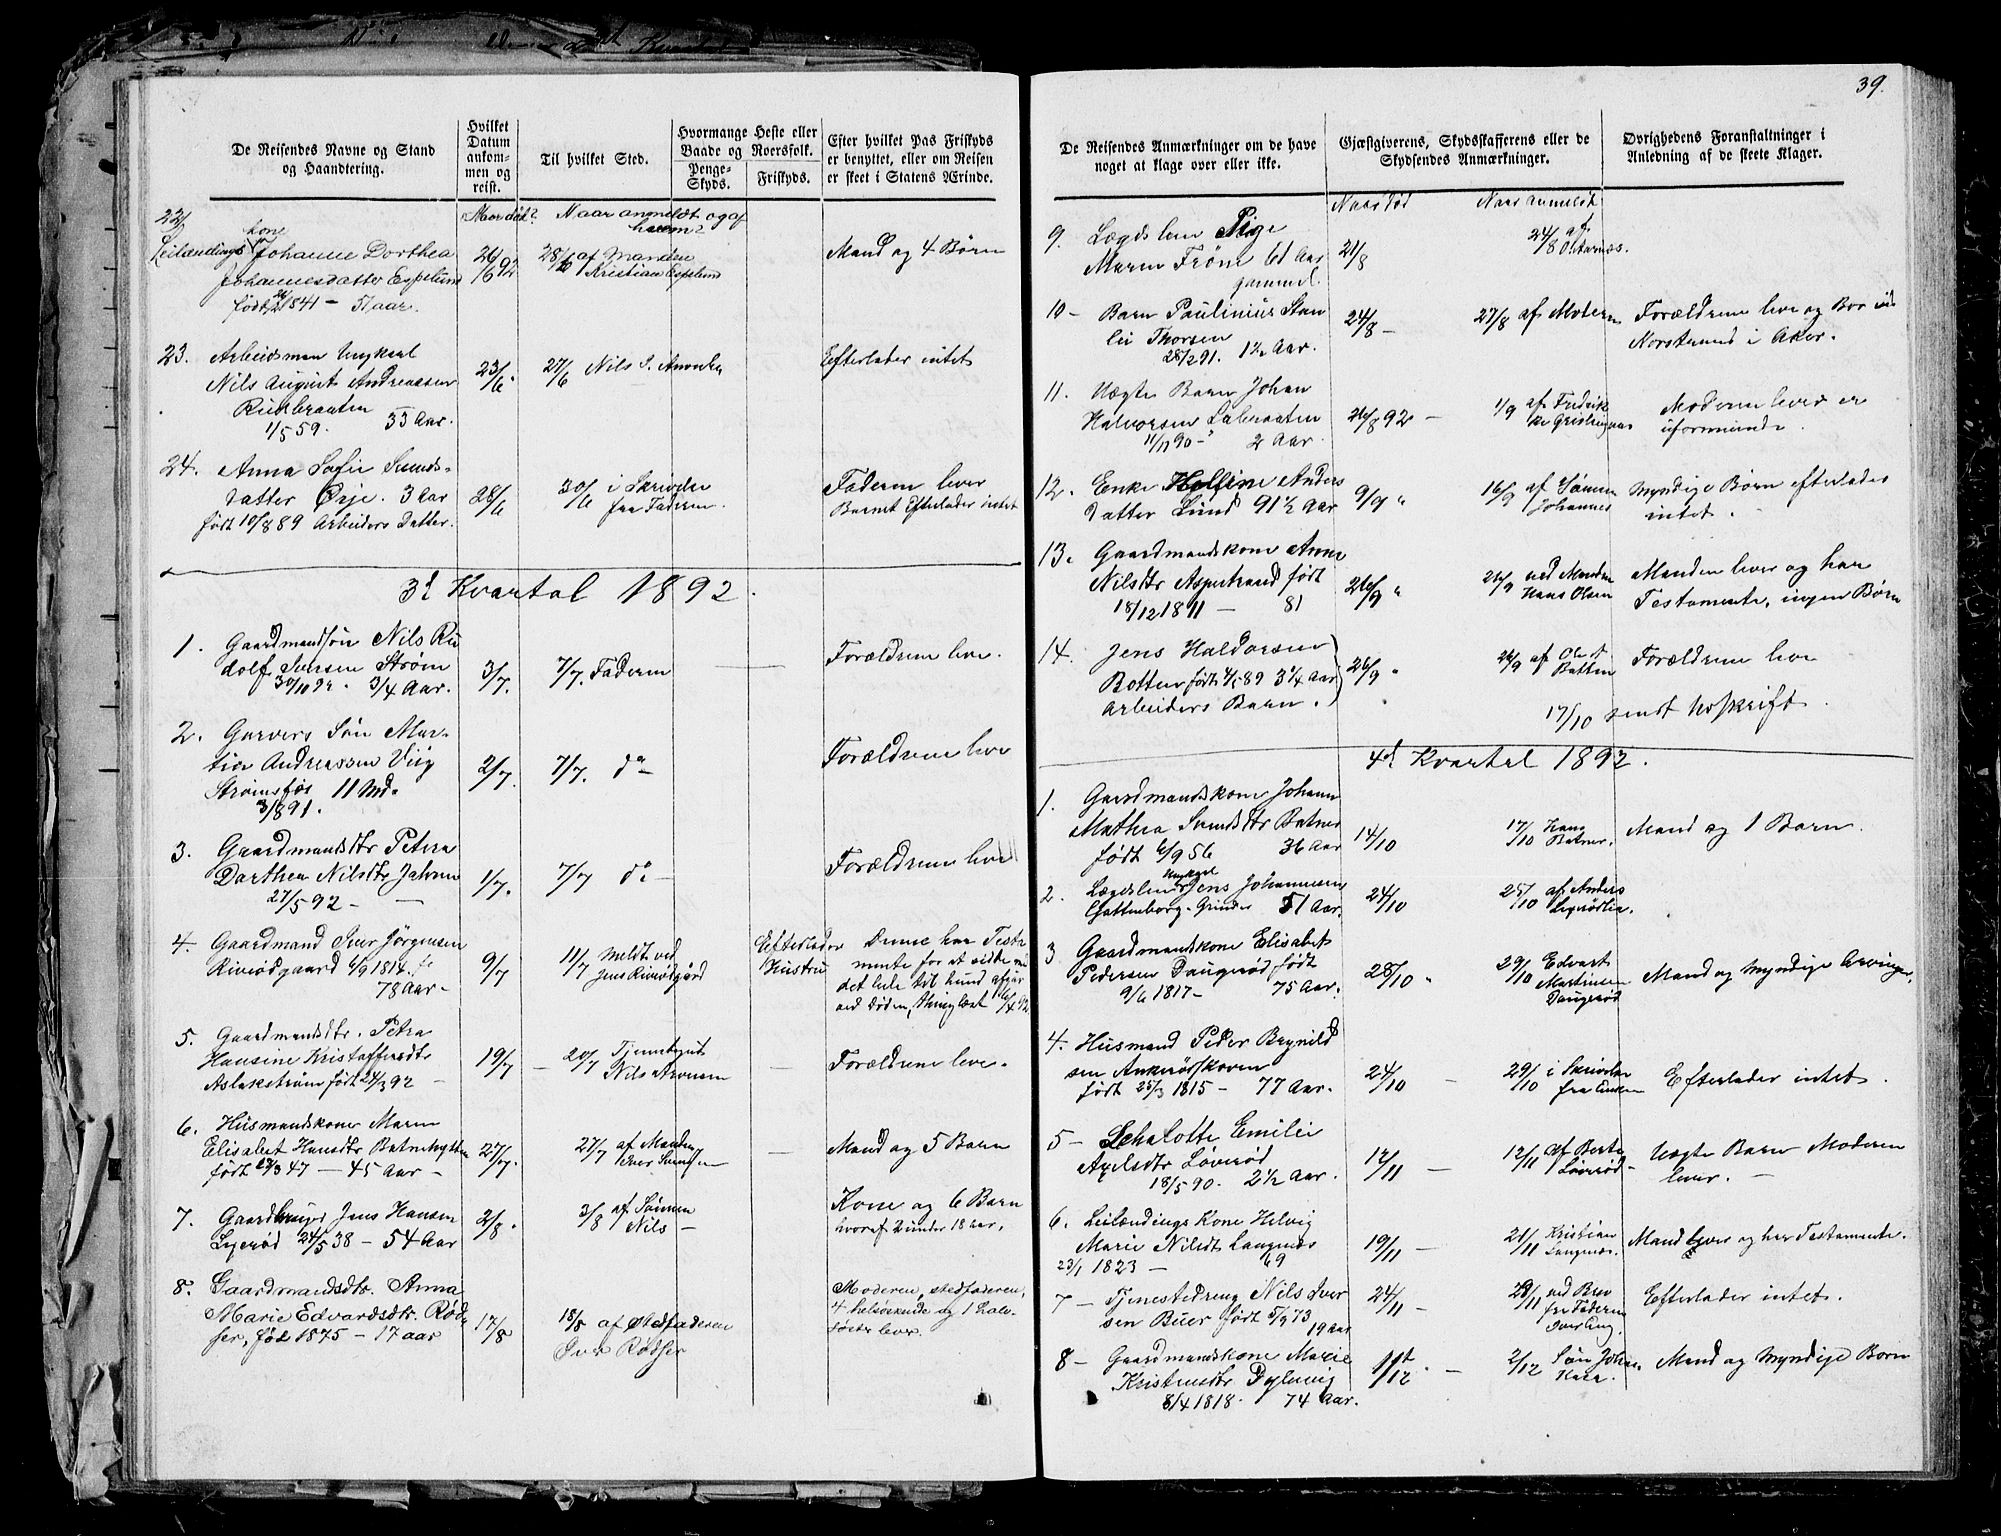 39.
De Reisendes Navne og Stand
og Haandtering.
Hvilket
Datum
ankom-
men og
reist.
Til hvilket Sted.
Hvormange Heste eller
Baade og Roersfolk.
Penge-
Skyds.
Friskyds.
Efter hvilket Pas Friskyds
er benyttet, eller om Reisen
er skeet i Statens Ærinde.
22/
Naar død?
Naar anmeldt og af
hvem?
Leilændings kone Johanne Dorthea
Johannesdatter Espelund
født 1841 — 51 aar.
26/6 92
28/6 af Manden
Kristian Espelund
Mand og 4 Børn
23. Arbeidsman Ungkarl
Nils August Andreassen
Rudbraaten
1/5 59. 33 Aar.
23/6.
27/6 Nils S.
Efterlader intet
24. Anna Sofie Svends-
datter Ørje. 3 Aar
født 10/8 89 Arbeiders Datter.
28/6
30/6 i Skrivelse
fra Faderen.
Faderen lever
Barnet Efterlader intet
3d Kvartal 1892.
1. Gaardmandsøn Nils Ru
dolf Iversen Strøm
30/10 9 . 3/4 Aar.
3/7.
7/7. Faderen
Forældrene leve.
2. Garvers Søn Mar-
tin Andreassen Viig
Strømsfos 11 Md.
3/8 91.
2/7.
7/7. do
Forældrene leve
3. Gaardmandsdtr Petra
Dorthea Nilsdtr
27/5 92 —
1/7.
7/7 do
Forældrene leve
4. Gaardmand Iver Jørgensen
Riviødgaard 6/9 1814.
78 Aar -
9/7
11/7 Meldt ved
Jens Riviødgård
Efterlader
Hustru
Denne har Testa
mente for at sidde
det hele til hund afgår
ved Døden, thinglæst
5. Gaardmandsdtr. Petra
Hansine Kristoffersdtr
Aslakstrøm født 24/3 92 —
19/7
20/7 Tjenestegut
Nils Arvesen
Forældrene leve.
6. Husmandskone Maren
Elisabet Hansdtr
født 47 — 45 Aar —
27/7.
27/7 af Manden
Iver
Mand og 5 Barn
7. Gaardbruger Jens Hansen
Lyerød 24/5 38 — 54 Aar
2/8.
3/8 af Sønnen
Nils —
Kone og 6 Barn
hvoraf 2 under 18 aar.
8. Gaardmandsdtr. Anna
Marie Edvardsdtr. Rød-
ser, fød 1875 — 17 aar
17/8
18/8 af Stedfaderen
Rødser
Moderen, stedfaderen,
4 helsøskende og 1 hals-
søster lever.
De Reisendes Anmærkninger om de have
noget at klage over eller ikke.
Gjæstgiverens, Skydsskafferens eller de
Skydsendes Anmærkninger.
Øvrighedens Foranstaltninger i
Anledning af de skeete Klager.
Naar død
Naar anmeldt
af
9. Lægdslem Pige
Maren Frøne 61 Aar
gammel.
21/8
24/8
10 — Barn Paulinius Stan
lei Thorsen
28/2 91. 1½ Aar.
24/8 —
27/8 af Moteren
Forældrene leve og Bor ved
Norstrand i Aker.
11. Uægte Barn Johan
Halvorsen
11/11 90 — 2 Aar.
26/8 92 —
1/9 af Fredrik
Moderen lever er
uformuende.
12. Enke Anders
datter Lund 91½ Aar
9/9 "
16/9 af Sønnen
Johannes
Myndige Børn efterlader
intet.
13. Gaardmandskone Anne
Nilsdtr født
18/12 1811 — 81
26/9 "
26/9 ved Manden
Hans Olsen
Manden lever og har
Testamente, ingen Børn
14. Jens Haldorsen
Botten født 89 3¼ Aar
Arbeiders Barn.
26/9 "
26/9 af
Botten
Forældrene leve
17/10 sendt Udskrift.
4d Kvartal 1892.
1. Gaardmandskone Johann
Mathea Svendsdtr
født 6/9 56 36 Aar
14/10
17/10 Hans
Mand og 1 Barn.
2. Lægdslem Ungkarl Jens Johannesen
51 Aar.
24/10
25/10 af Anders
3 Gaardmandskone Elisabet
Pedersen Daugerød, født
9/6 1817 — 75 Aar.
28/10 "
29/10 Edvart
Martinsen
Daugerød
Mand og Myndige Arvinger.
4. Husmand Peder Brynild
sen Ankerødskoven
født 25/3 1815 — 77 Aar.
24/10 —
29/10 i Skrivelse
fra Enken
Efterlader intet.
5 — Schalotte Emilie
Axelsdtr Løverød
18/5 90. 2½ Aar.
12/11 —
12/11 af Berte
Løverød —
Uægte Barn Moderen
lever. —
6. Leilændings Kone Helvig
Marie Nilsdt Langnæs
23/1 1823 — 69
19/11 —
21/11 Kristian
Langnæs.
Mand lever og har Testamente.
7 — Tjenestedreng Nils Iver
sen Buer født 5/9 73
19 Aar
24/11 —
28/11 ved Brev
fra Faderen
Iver
Efterlader intet.
8 — Gaardmandskone Marie
Kristensdtr
8/4 1818. 74 Aar.
11t/12. —
2/12 Søn Johan
Mand og Myndige Børn